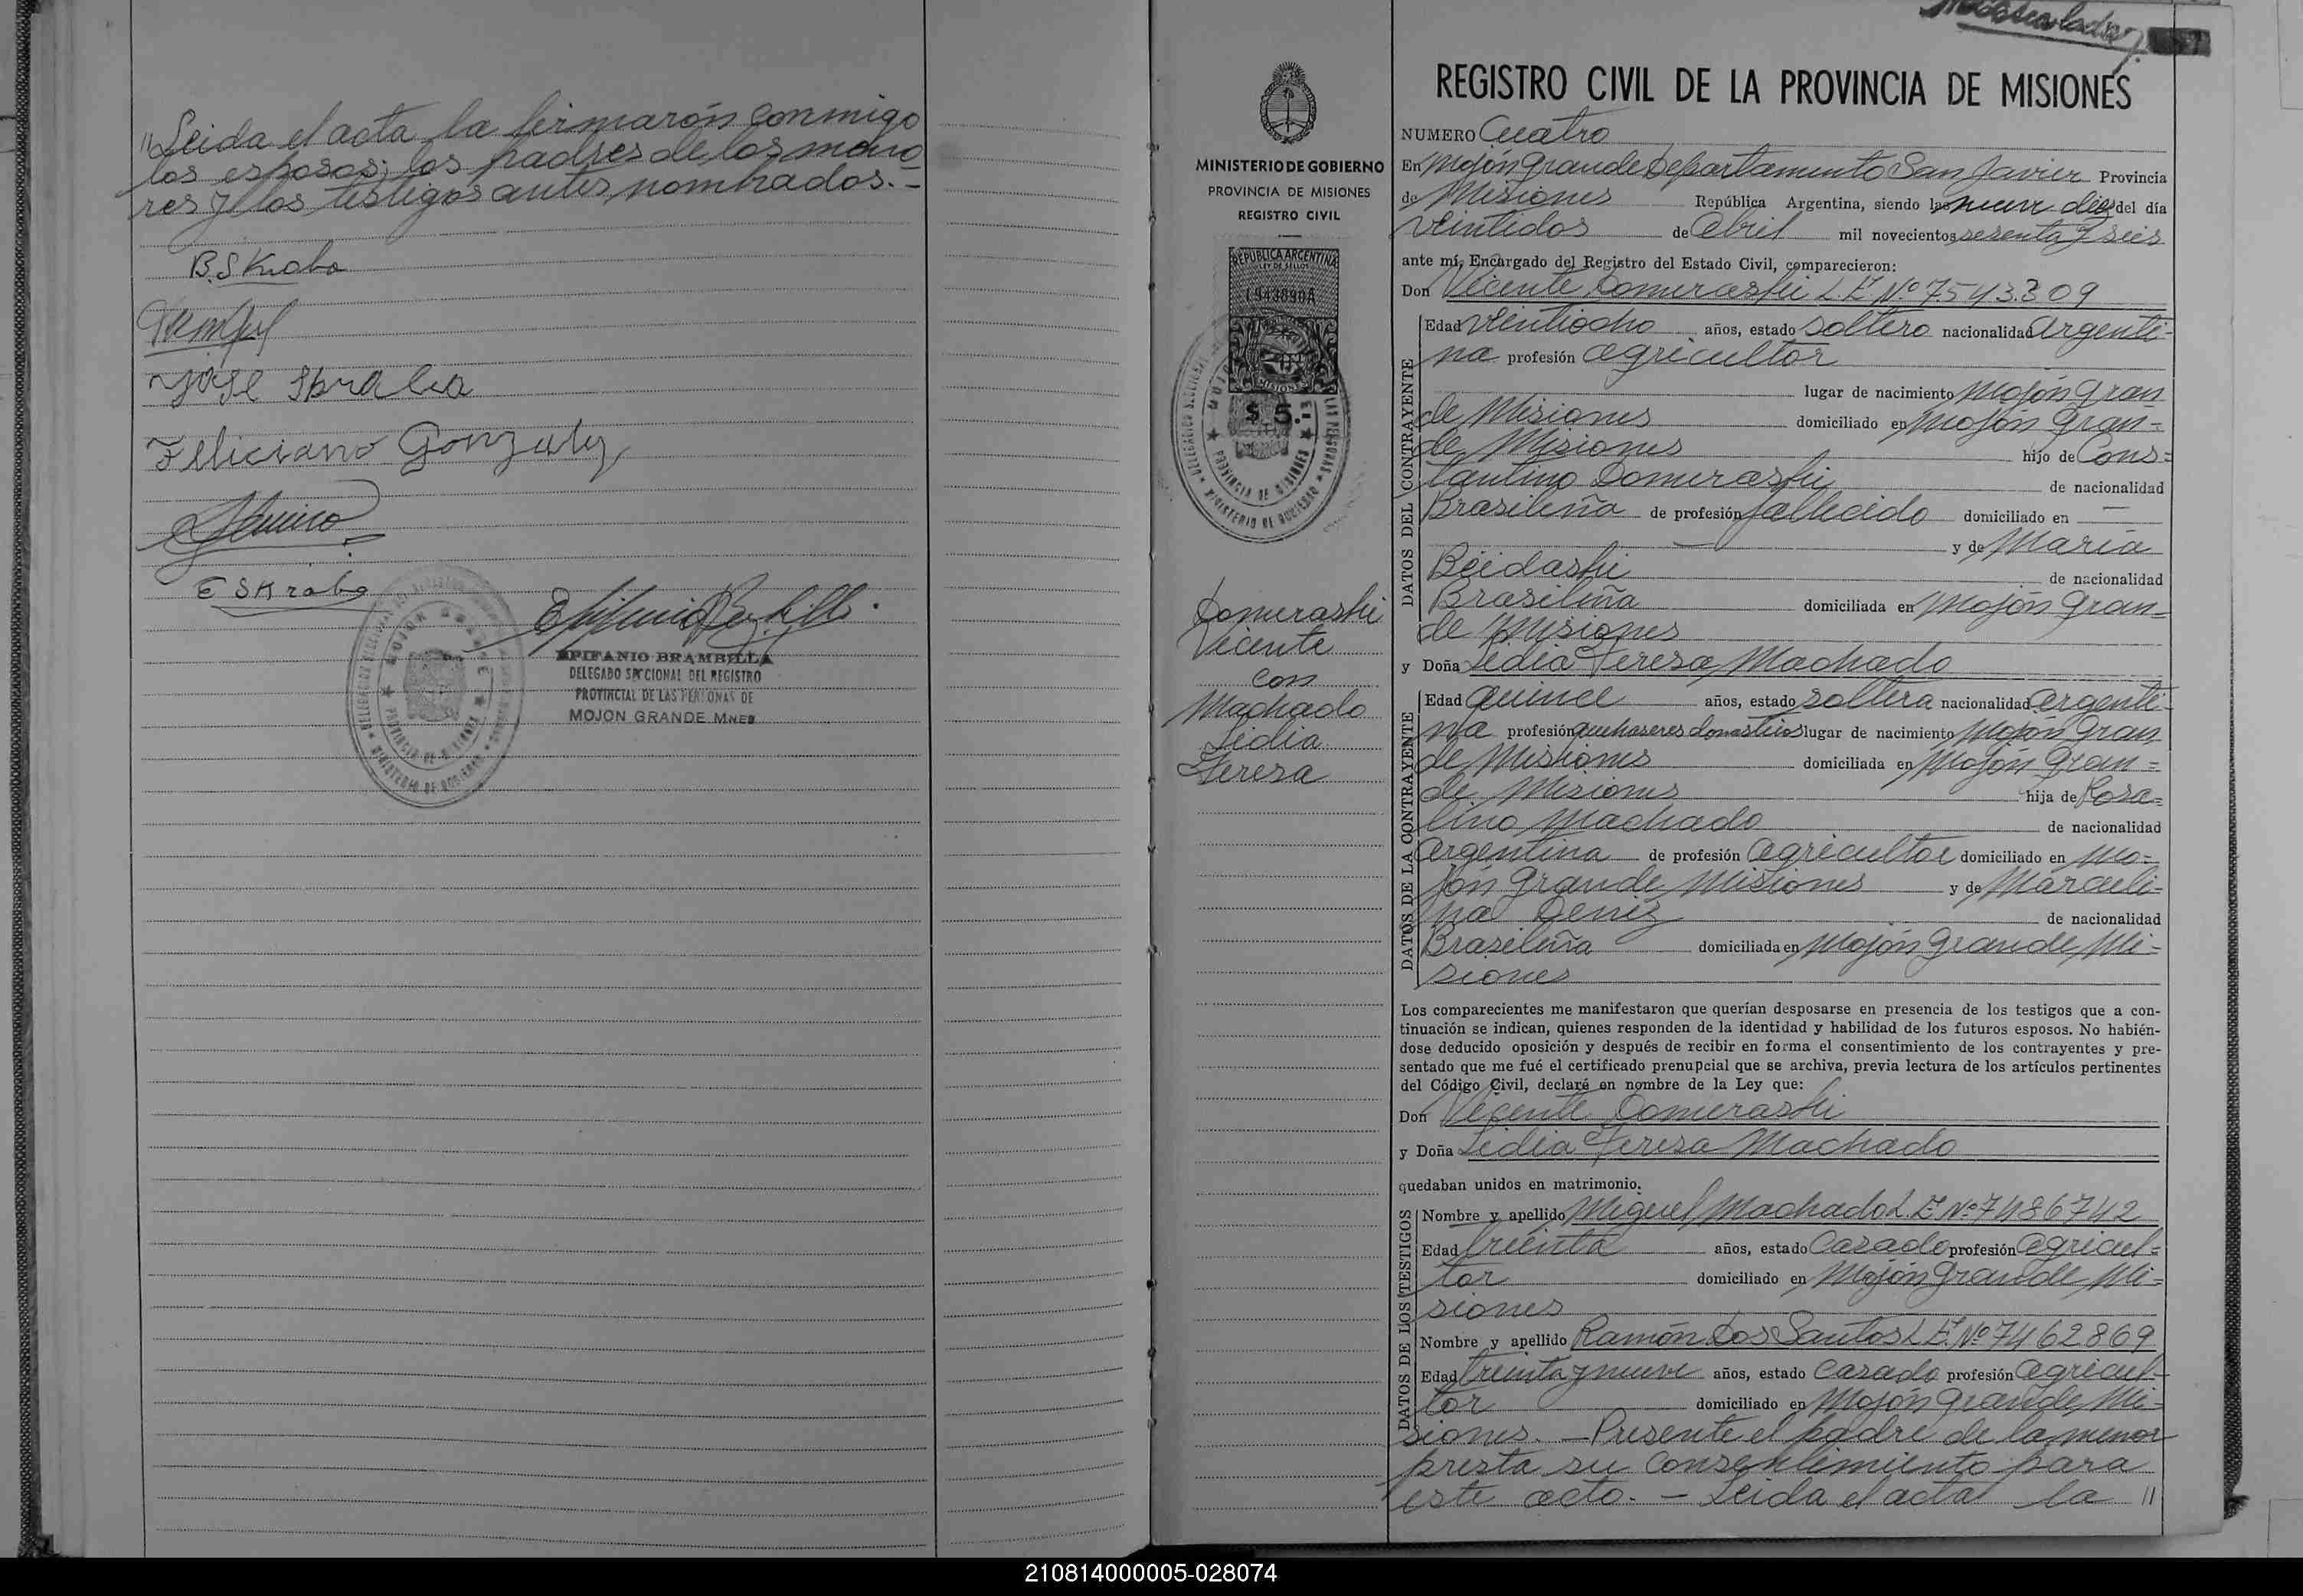 "Leida el acta la firmarón conmigo
los esposos; los padres de los meno
res y los testigos antes nombrados.-
B. SKraba
José Skraba
Feliciano Gonzalez
E SKraba
EPIFANIO BRAMBILLA
DELEGADO SECCIONAL DEL REGISTRO
PROVINCIAL DE LAS PERSONAS DE
MOJON GRANDE MNES
MINISTERIO DE GOBIERNO
PROVINCIA DE MISIONES
REGISTRO CIVIL
REPUBLICA ARGENTINA
LEY DE SELLOS
MISIONES
$ 5.-
MOJON GRANDE
PROVINCIA DE MISIONES
MINISTERIO DE GOBIERNO
Domeraski
Vicente
con
Machado
Lidia
Teresa
REGISTRO CIVIL DE LA PROVINCIA DE MISIONES
NUMERO Cuatro
En Mojón Grande Departamento San Javier Provincia
de Misiones República Argentina, siendo las nueve diez del día
Veintidos de Abril mil novecientos sesenta y seis
ante mí, Encargado del Registro del Estado Civil, comparecieron:
Don Vicente Domeraski L.E Nº 7.543.309
DATOS DEL CONTRAYENTE
Edad Veintiocho años, estado Soltero nacionalidad Argenti-
na profesión Agricultor
lugar de nacimiento Mojón Gran
de Misiones domiciliado en Mojón Gran=
de Misiones hijo de Cons=
tantino Domeraski de nacionalidad
Brasileña de profesión fallecido domiciliado en —
y de María
Beidaski de nacionalidad
Brasileña domiciliada en Mojón Gran=
de Misiones
y Doña Lidia Teresa Machado
DATOS DE LA CONTRAYENTE
Edad Quince años, estado Soltera nacionalidad Argenti-
na profesión quehaseres domesticos lugar de nacimiento Mojón Gran
de Misiones domiciliada en Mojón Gran=
de Misiones hija de Rosa=
lino Machado de nacionalidad
Argentina de profesión Agricultor domiciliado en Mo=
jón Grande Misiones y de Marceli-
na Deniz de nacionalidad
Brasileña domiciliada en Mojón Grande Mi-
siones
Los comparecientes me manifestaron que querían desposarse en presencia de los testigos que a con-
tinuación se indican, quienes responden de la identidad y habilidad de los futuros esposos. No habién-
dose deducido oposición y después de recibir en forma el consentimiento de los contrayentes y pre-
sentado que me fué el certificado prenupcial que se archiva, previa lectura de los artículos pertinentes
del Código Civil, declaré en nombre de la Ley que:
Don Vicente Domeraski
y Doña Lidia Teresa Machado
quedaban unidos en matrimonio.
DATOS DE LOS TESTIGOS
Nombre y apellido Miguel Machado L.E Nº 7486742
Edad treinta años, estado Casado profesión Agricul=
tor domiciliado en Mojón Grande Mi=
siones
Nombre y apellido Ramón Dos Santos L.E. Nº 7462869
Edad treinta y nueve años, estado Casado profesión Agricul-
tor domiciliado en Mojón Grande, Mi=
siones. —Presente el padre de la menor
presta su consentimiento para
este acto. — Leida el acta la "
210814000005-028074